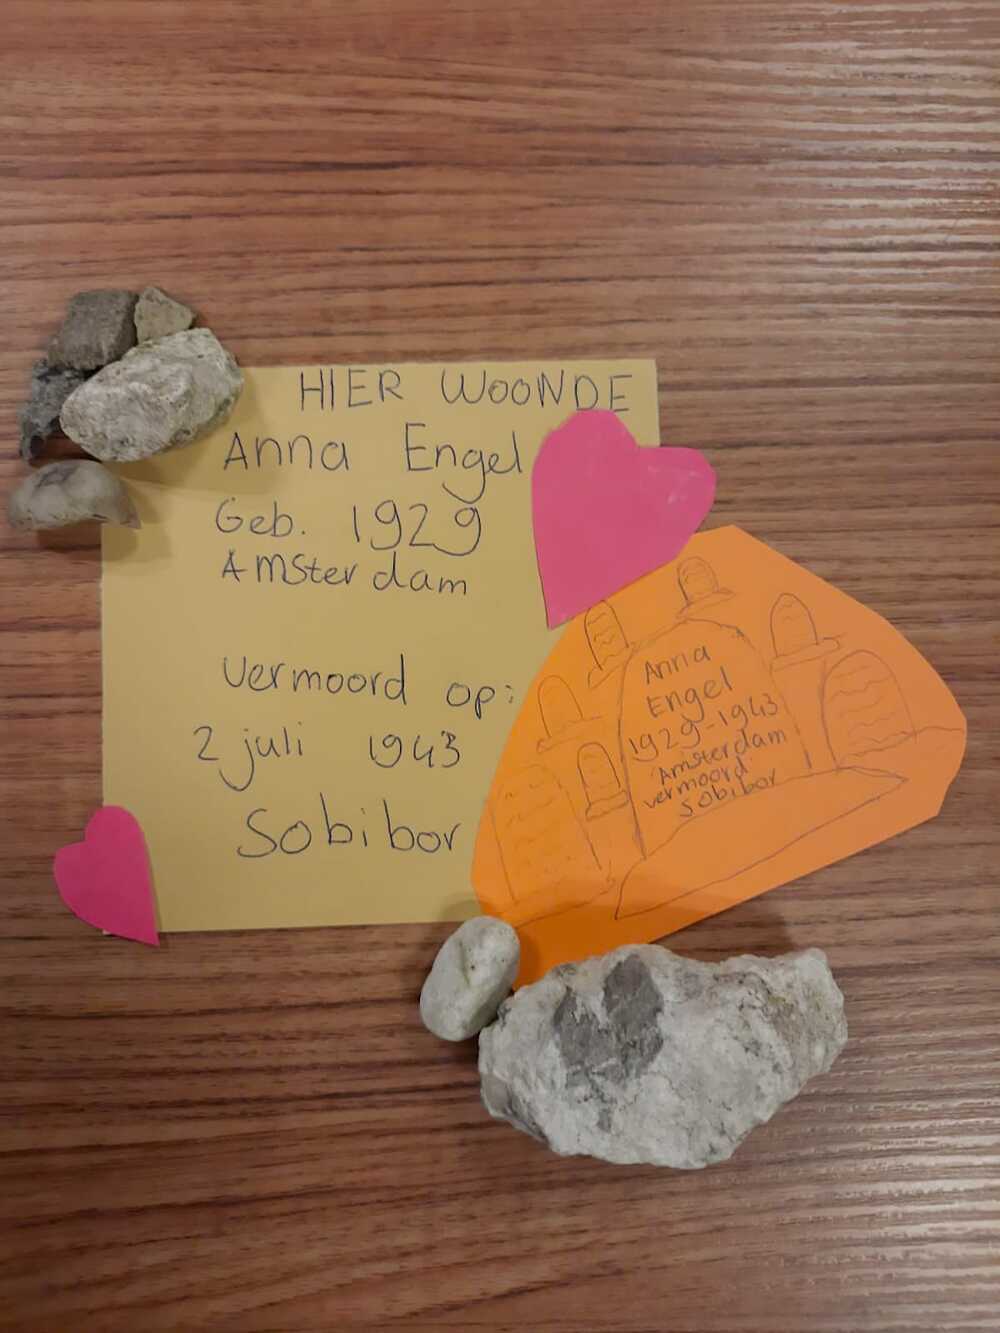 HIER WOONDE
Anna Engel
Geb. 1929
Amsterdam
vermoord op:
2 juli 1943
Sobibor
Anna
Engel
1929-1943
Amsterdam
vermoord
Sobibor